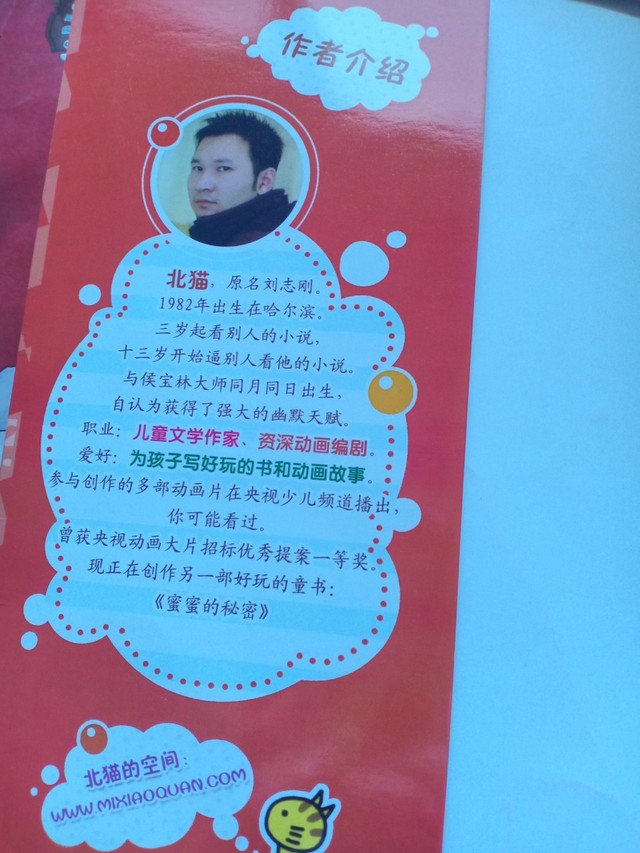 作者介绍
北猫，原名刘志刚。
1982年出生在哈尔滨。
三岁起看别人的小说，
十三岁开始逼别人看他的小说。
与侯宝林大师同月同日出生，
自认为获得了强大的幽默天赋。
职业：儿童文学作家、资深动画编剧。
爱好：为孩子写好玩的书和动画故事。
参与创作的多部动画片在央视少儿频道播出，
你可能看过。
曾获央视动画大片招标优秀提案一等奖。
现正在创作另一部好玩的童书：
《蜜蜜的秘密》
北猫的空间：
WWW.MIXIAOQUAN.COM